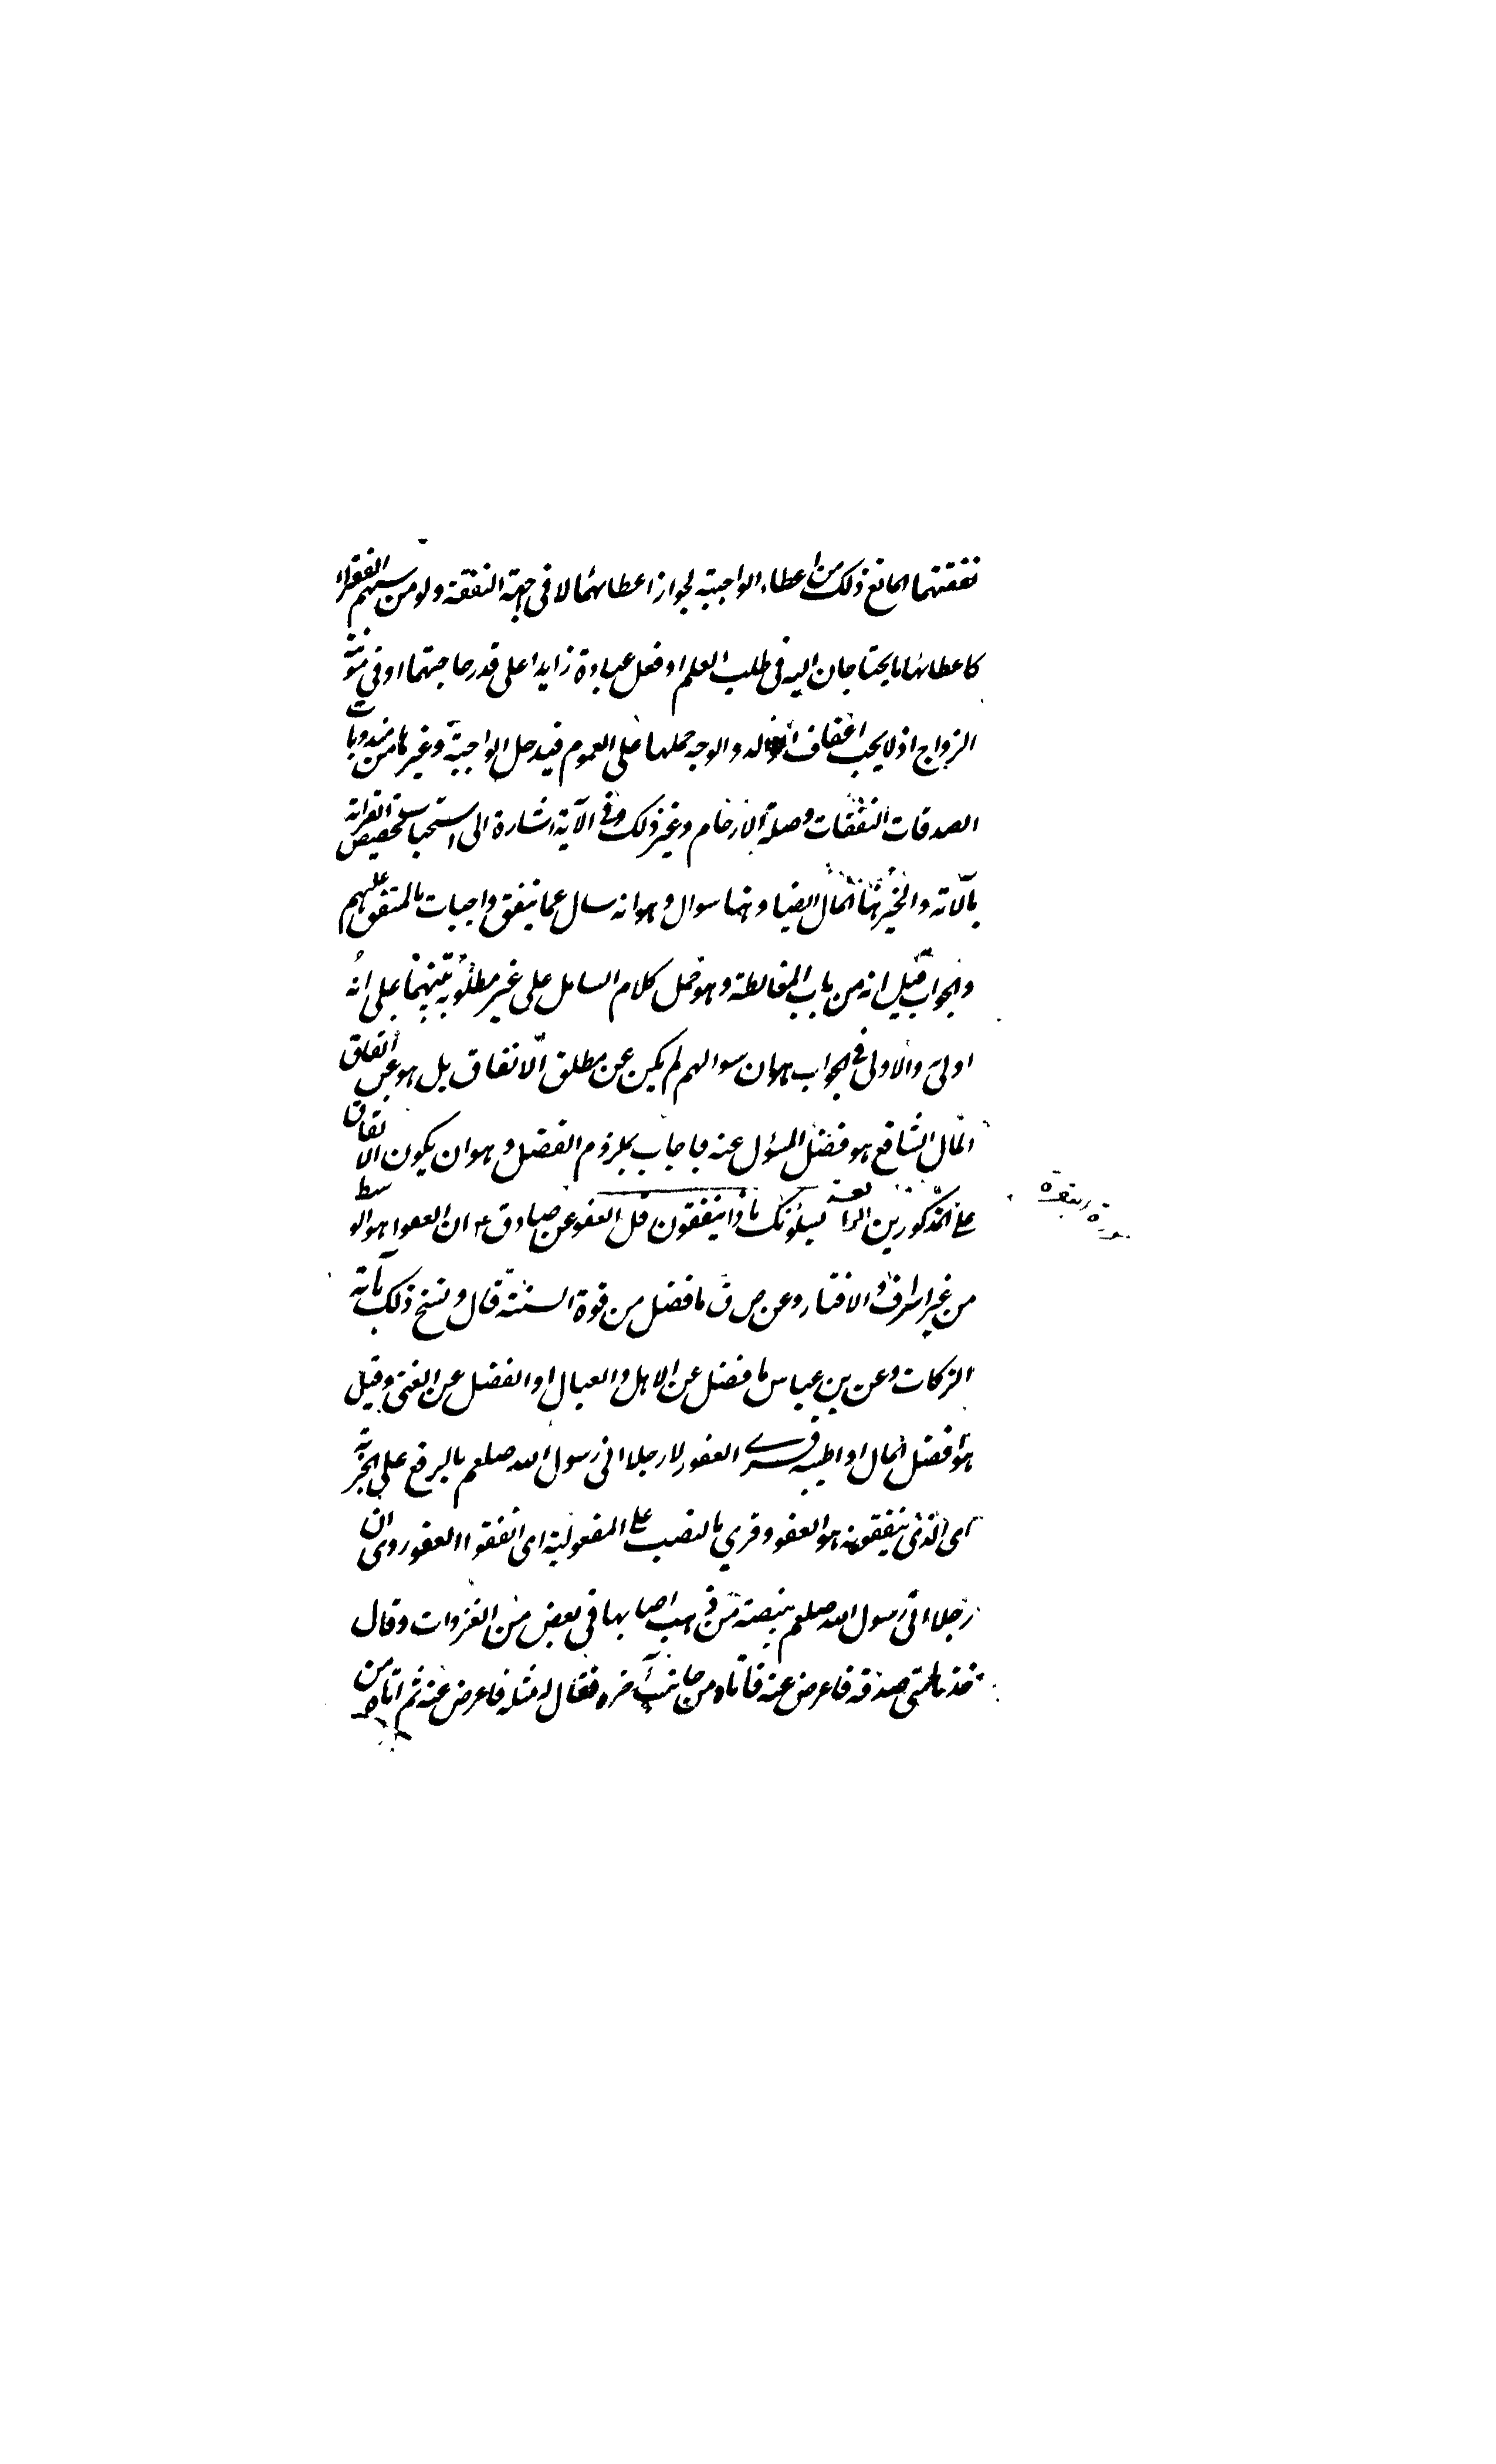 نفقتهما المانع ذلك من اعطاء الواجبة لجواز اعطائهما لا في جهة النفقة ولو من سهم الفقراء
كاعطائهما ما يحتاجان اليه في طلب العلم او فعل عبادة زايدا على قدر حاجتهما او في مؤنة
الزواج اذ لا يجب اعفاف والوجه حملها على العموم فيدخل الواجبة وغيرها من مندوبات
الصدقات النفقات وصلة الارحام وغير ذلك وفي الآية اشارة الى استحباب تخصيص القرابة
بالاته والخير هنا المال ايضا وهنا سوال وهو انه سال عما ينفق واجيبات بالمتفق عليهم
والجواب قيل انه من باب المغالطة وهو حمل كلام السايل على غير مطلوبه تنبيها على انه
اولى والاولى في الجواب هو ان سوالهم لم يكن عن مطلق الانفاق بل هو عن انفاق
المال النافع هو فضل المسؤل عنه فاجاب بملزوم الفضل وهو ان يكون الانفاق
على المذكورين الرابعة يسئلونك ماذا ينفقون قل العفو عن صادق ع ان العفوا هو الوسط
من غير اسراف والاقتار وعن ص ق ما فضل من قوة السنة قال ونسخ ذلك بآية
الزكات وعن بن عباس ما فضل عن الاهل والعيال او الفضل عن الغنى وقيل
هو افضل المال او اطيبه قرئ العفو لا رجلا اتى رسول الله صلعم بالرفع على الخبرية
اى الذى ينفقونه هو العفو وقري بالنصب على المفعولية اى انفقوا العفو روى ان
رجلا اتى رسول الله صلعم ببيضة من ذهب اصابها في بعض من الغزوات وقال
خذها منى صدقة فاعرض عنه فاتاه من جانب آخره فقال له مثله فاعرض عنه ثم اتاه من
سورة البقرة